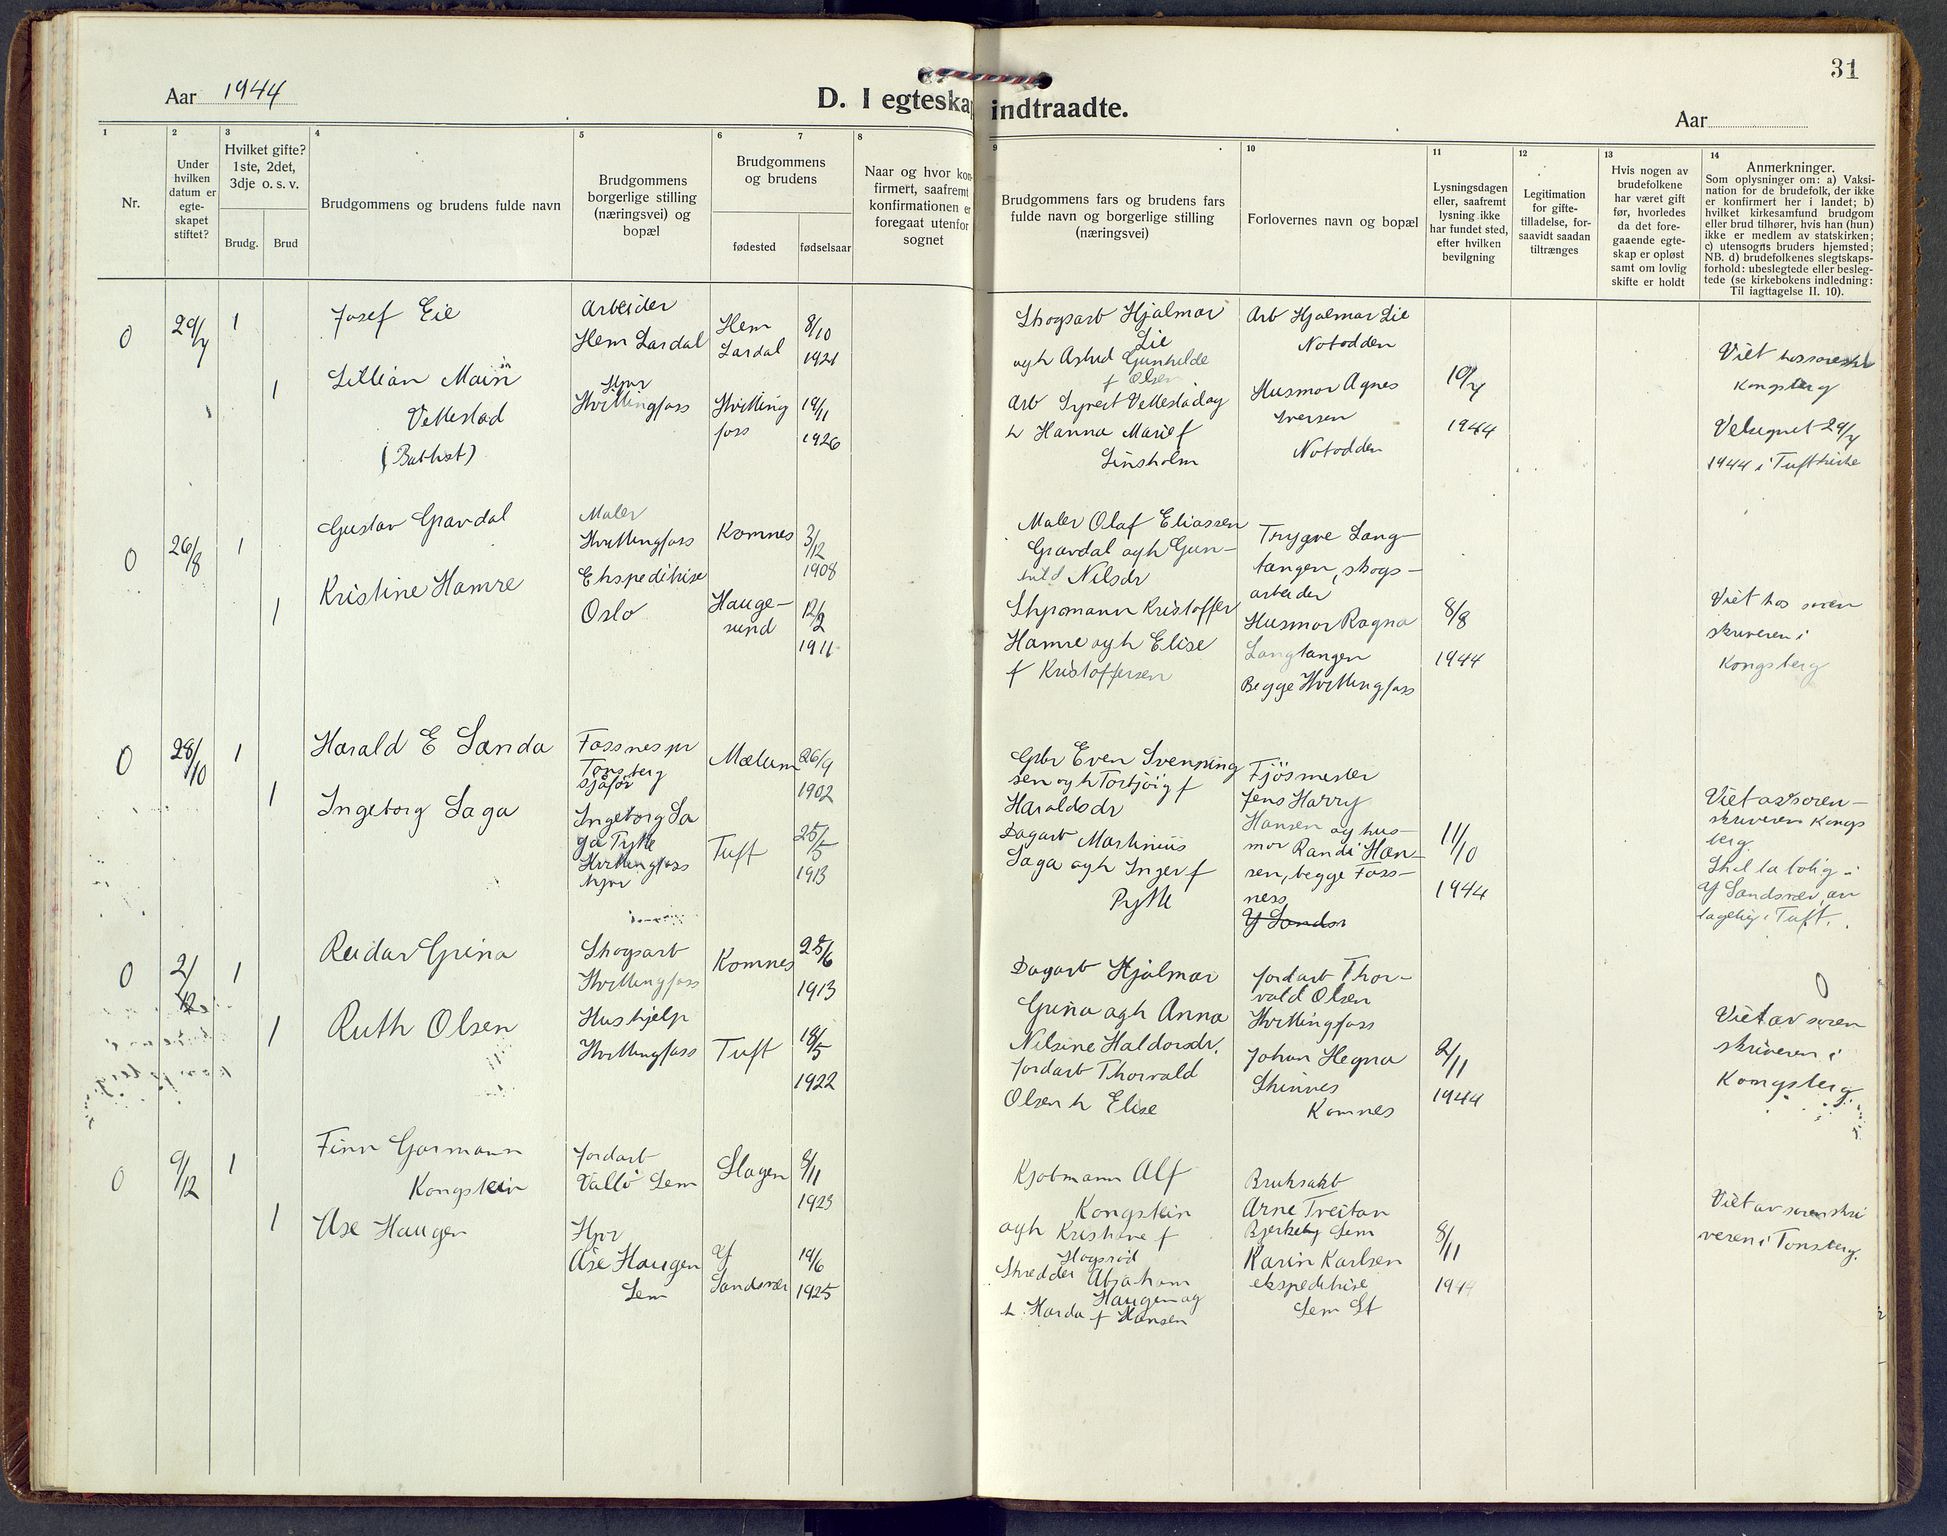 31
Aar 1944
D. I egteskap indtraadte.
Aar
1 2 3 4 5 6 7 8 9 10 11 12 13 14
Nr.
Under hvilken datum er egte-skapet stiftet?
Hvilket gifte? 1ste, 2det, 3dje o. s. v.
Brudg. Brud
Brudgommens og brudens fulde navn
Brudgommens borgerlige stilling (næringsvei) og bopæl
Brudgommens og brudens
fødested fødselsaar
Naar og hvor kon-firmert, saafremt konfirmationen er foregaat utenfor sognet
Brudgommens fars og brudens fars fulde navn og borgerlige stilling (næringsvei)
Forlovernes navn og bopæl
Lysningsdagen eller, saafremt lysning ikke har fundet sted, efter hvilken bevilgning
Legitimation for gifte-tilladelse, for-saavidt saadan tiltrænges
Hvis nogen av brudefolkene har været gift før, hvorledes da det fore-gaaende egte-skap er opløst samt om lovlig skifte er holdt
Anmerkninger.
Som oplysninger om: a) Vaksi-nation for de brudefolk, der ikke er konfirmert her i landet; b) hvilket kirkesamfund brudgom eller brud tilhører, hvis han (hun) ikke er medlem av statskirken; c) utensogns bruders hjemsted; NB. d) brudefolkenes slegtskaps-forhold: ubeslegtede eller besleg-tede (se kirkebokens indledning: Til iagttagelse II. 10).
0 29/7 1
Josef Eie
Arbeider
Hem Lardal
Hem
Lardal
8/10
1921
Skogsarb Hjalmar
Lie
og h Astrid Gunhilde
f Olsen
Arb Hjalmar Lie
Notodden
1
Lillian Main
Vettestad
(Babtist)
Hjvr
Hvittingfoss
Hvitting
foss
19/11
1926
Arb Syvert Vettestad og
h Hanna Marie f
Linsholm
Husmor Agnes
Iversen
Notodden
10/7
1944
Viet hos sorenskr
Kongsberg
Velsignet 29/7
1944 i Tuft kirke
0 26/8 1
Gustav Gravdal
Maler
Hvittingfoss
Komnes
3/12
1908
Maler Olaf Eliassen
Gravdal og h Gun-
hild Nilsdr
Trygve Lang-
tangen, skogs-
arbeider
1
Kristine Hamre
Ekspeditrise
Oslo
Hauge-
sund
12/2
1911
Styrmann Kristoffer
Hamre og h Elise
f Kristoffersen
Husmor Ragna
Langtangen
Begge Hvittingfoss
8/8
1944
Viet hos soren
skriveren i
Kongsberg
0 28/10 1
Harald E Sanda
Fossnes pr
Tønsberg
sjåfør
Mælum
26/9
1902
Gbr Even Svenning
sen og h Torbjörg f
Haraldsdr
Fjösmester
Jens Harry
Hansen og hus-
mor Randi Han-
sen, begge Foss-
ness
1
Ingeborg Saga
Ingeborg Sa
ga Pytte
Hvittingfoss
hjvr
Tuft
25/5
1913
Dagarb Martinius
Saga og h Inger f
Pytte
11/10
1944
Viet av soren-
skriveren Kongs
berg.
Skal ta bolig i
Y Sandsvær, an
tagelig i Tuft.
0 2/12 1
Reidar Grina
Skogsarb
Hvittingfoss
Komnes
25/6
1913
Dagarb Hjalmar
Grina og h Anna
Nilsine Haldorsdr.
Jordarb Thor-
vald Olsen
Hvittingfoss
1
Ruth Olsen
Hushjelp
Hvittingfoss
Tuft
18/5
1922
Jordarb Thorvald
Olsen h Elise
Johan Hegna
Skinnes
Komnes
2/11
1944
0
Viet av soren
skriveren i
Kongsberg.
0 9/12 1
Finn Gormann
Kongstein
Jordarb
Vallö Sem
Slagen
8/11
1923
Kjøbmann Alf
Kongstein
og h Kristine f
Hogsrød
Bruksarb
Arne Tveitan
Bjerkeby Sem
1
Åse Haugen
Hjvr
Åse Haugen
Sem
Y
Sandsvær
19/6
1925
Skredder Abraham
Haugen og
h. Marda f Hansen
Karin Karlsen
ekspeditrise
Sem St
8/11
1944
Viet av sorenskri
veren i Tønsberg.